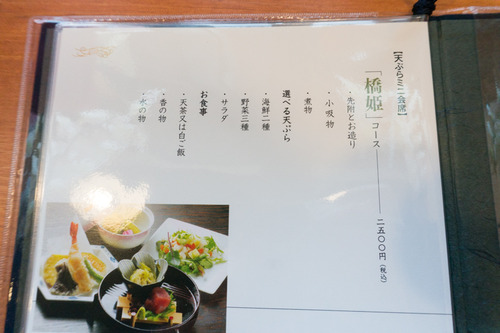 【天ぷらミニ会席】
「橋姫」コース――二五〇〇円(税込)
・先附とお造り
・小吸物
・煮物
選べる天ぷら
・海鮮二種
・野菜三種
・サラダ
お食事
・天茶又は白ご飯
・香の物
・水の物